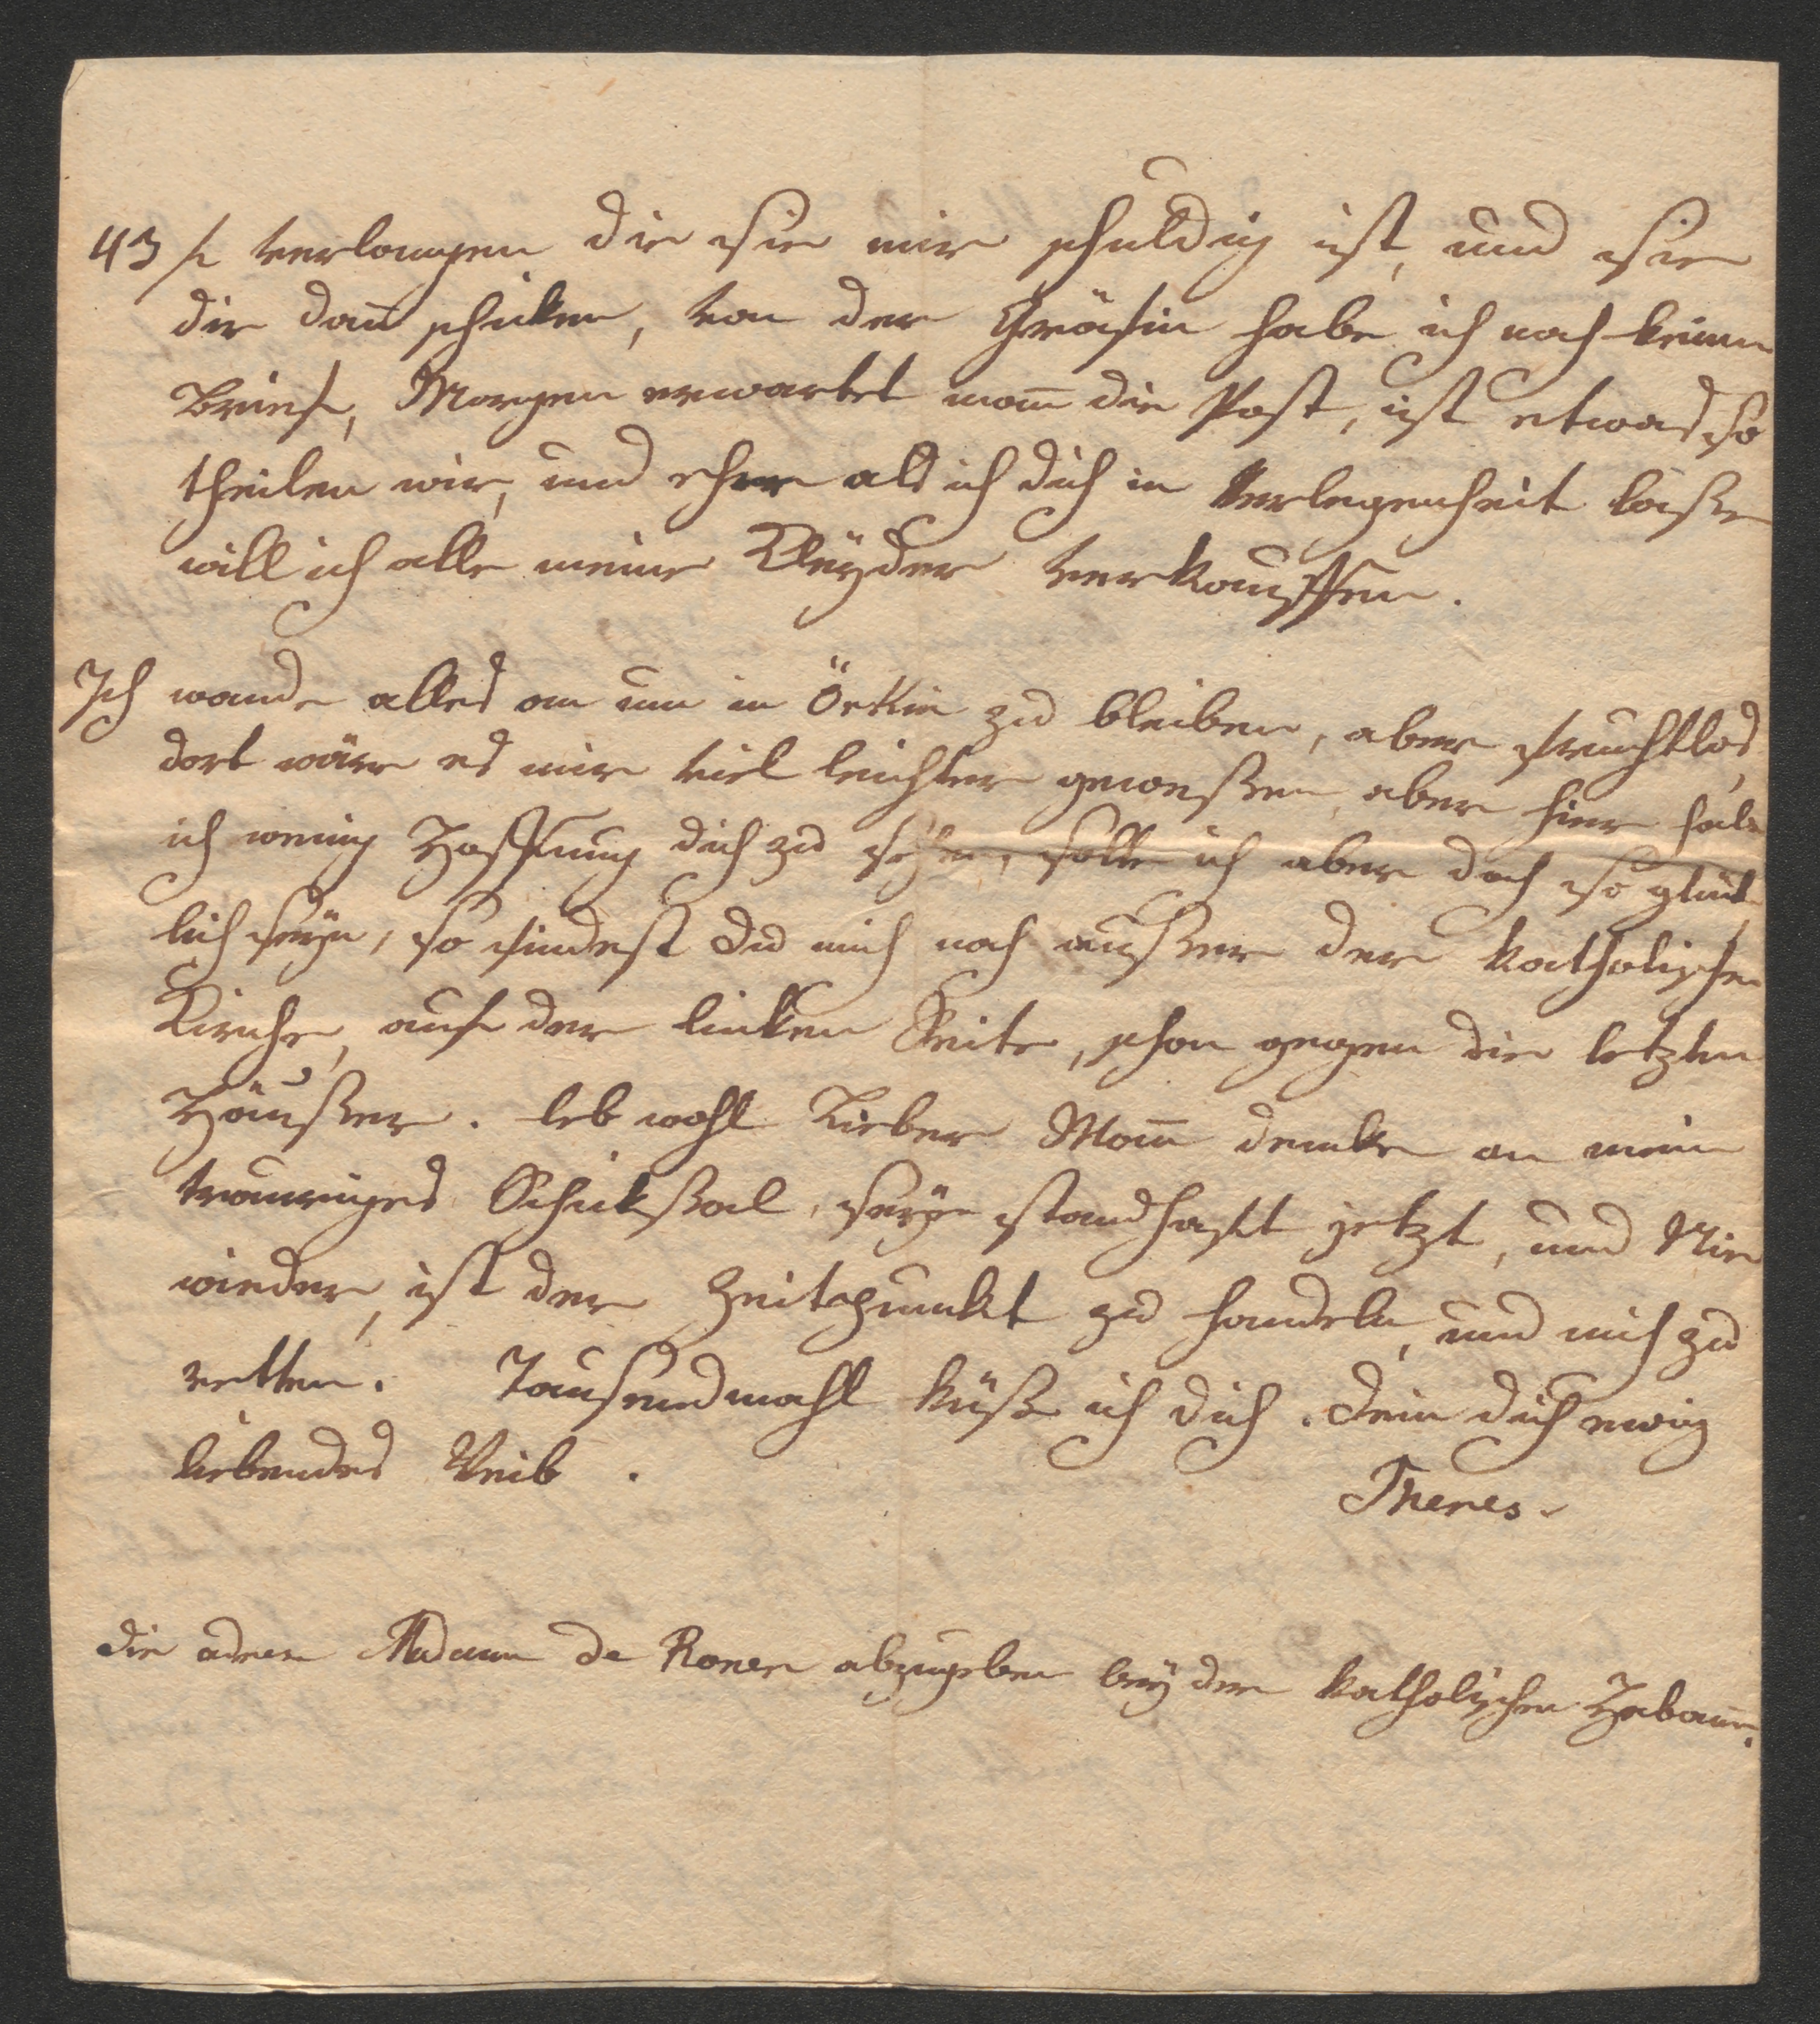 43 f verlangen die sie mir schuldig ist, und sie
dir dan̄ schicken, von der Gräfin habe ich noch keinen
Brief, Morgen erwartet man̄ die Post, ist etwas so
theilen wir, und eher als ich dich in Verlegenheit laße
will ich alle meine Kleÿder verkauffen.
Ich wande alles an um in Örkin zu bleiben, aber fruchtlos,
dort wäre es mir viel leichter geweßen, aber hier habe
ich wenig Hoffnung dich zu sehen, sollte ich aber doch so glük
lich seÿn, so findest du mich nach außer der katholischen
Kirche, auf der linken Seite, schon gegen die letzten
Häußer. leb wohl Lieber Man̄ denke an mein
trauriges Schikßal, seÿe standhaft jetzt, und Nie
wieder, ist der Zeitpunkt zu handeln, und mich zu
retten. Tausendmahl küße ich dich. Dein dich ewig
liebendes Weib.
Theres.
die adress Madame de abzugeben beÿ der katholischen Hebam̄e.